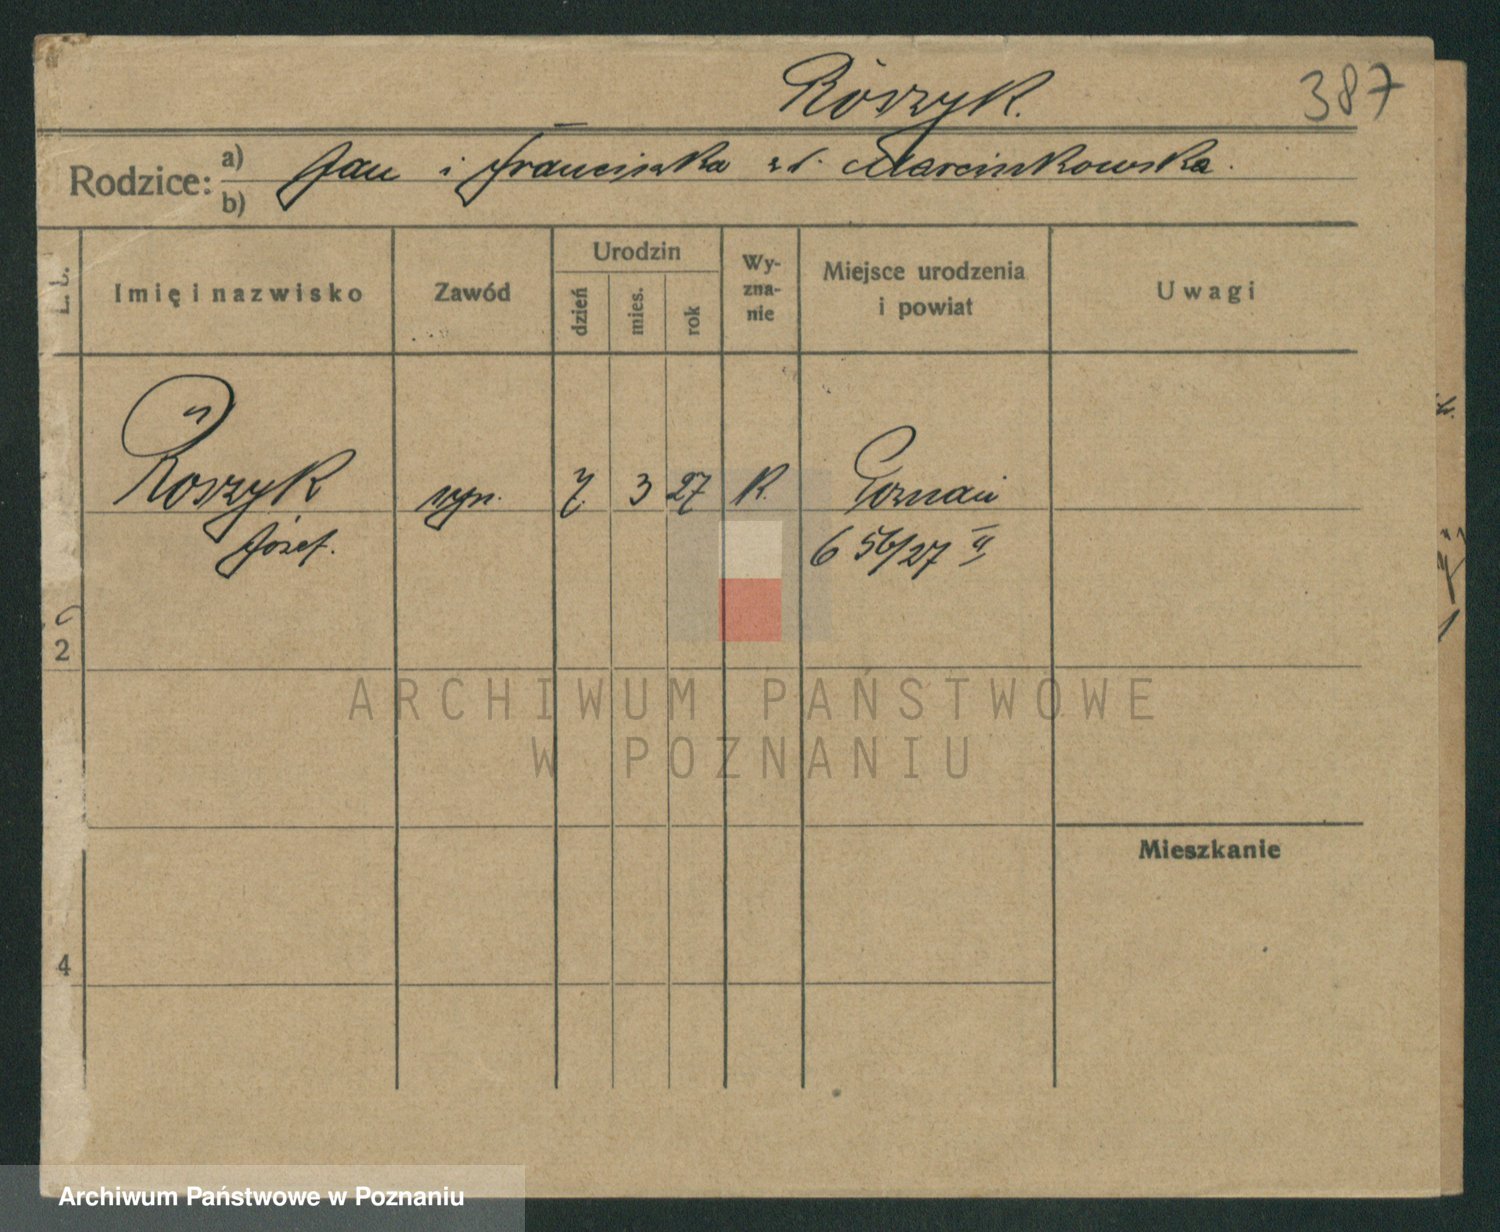 Rószyk.
387
Rodzice:
a) Jan i Franciszka z d. Marcinkowska.
b)
L. L.
Imię i nazwisko
Zawód
Urodzin
dzień
mies.
rok
Wy-
zna-
nie
Miejsce urodzenia
i powiat
Uwagi
Rószyk
Józef.
syn.
7.
3
27
R.
Poznań
656/27 II
2
4
Mieszkanie
ARCHIWUM PAŃSTWOWE
W POZNANIU
Archiwum Państwowe w Poznaniu